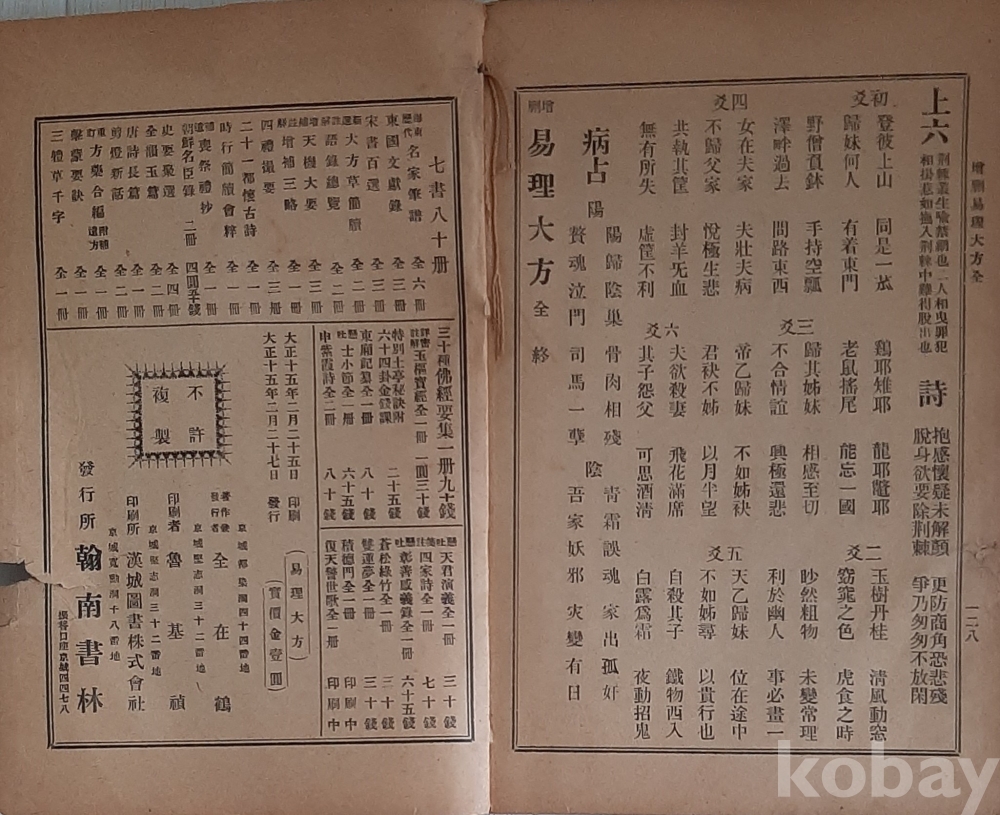 增刪易理大方全
一二八
上六 荊棘叢生喩禁網也二人相曳罪犯
相掛忽如拖入荊棘中難得脫出也
詩 抱感懷疑未解顏 更防商角恐悲殘
脫身欲要除荊棘 爭乃匆匆不放閑
初爻 登彼上山 同是一 鷄耶雉耶 龍耶鼈耶
二爻 玉樹丹桂 淸風動窓
歸妹何人 有着東門 老鼠搖尾 能忘一國 窈窕之色 虎食之時
野僧負鉢 手持空瓢
三爻 歸其姊妹 相感至切 眇然粗物 未變常理
澤畔過去 問路東西 不合情誼 興極還悲 利於幽人 事必畫一
四爻 女在夫家 夫壯夫病 帝乙歸妹 不如姊袂
五爻 天乙歸妹 位在途中
不歸父家 悅極生悲 君袂不姊 以月半望 不如姊尋 以貴行也
共執其筐 封羊旡血
六爻 夫欲殺妻 飛花滿席 自殺其子 鐵物西入
無有所失 虛筐不利 其子怨父 可思酒淸 白露爲霜 夜動招鬼
病占 陽 陽歸陰巢 骨肉相殘 陰 靑霜誤魂 家出孤奸
贅魂泣門 司馬一孽 吾家妖邪 灾變有日
增刪 易理大方 全 終
七書八十册
東國文獻錄 全三册
宋書百選 全三册
大方草簡牘 全三册
語錄總覽 全二册
天機大要 全二册
增補三略 全一册
四禮撮要
二十一都懷古詩
時行簡牘會粹 全一册
喪祭禮抄 全一册
朝鮮名臣錄 二册 四圓五十錢
史要聚選 全四册
全韻玉篇 全二册
唐詩長篇 全一册
剪燈新話 全二册
方藥合編 全一册
擊蒙要訣 全一册
三體草千字 全一册
三十種佛經要集一册九十錢
玉樞寶經全一册 一圓三十錢
特別土亭秘訣附
六十四卦金錢課 二十五錢
東廟記纂全一册 八十錢
士小節全一册 六十五錢
申紫霞詩全二册 八十錢
天君演義全一册 三十錢
四家詩全一册 七十錢
彰善感義錄全一册 六十五錢
蒼松綠竹全一册 三十錢
雙蓮夢全一册 三十錢
積德門全一册 印刷中
復天警世歌全一册 印刷中
大正十五年二月二十五日 印刷
大正十五年二月二十七日 發行
（易理大方）
（實價金壹圓）
不許複製
著作兼發行者 全在鶴
京城堅志洞三十二番地
印刷者 魯基禎
京城堅志洞三十二番地
印刷所 漢城圖書株式會社
京城寬勳洞十八番地
發行所 翰南書林
振替口座京城四四七八
kobay